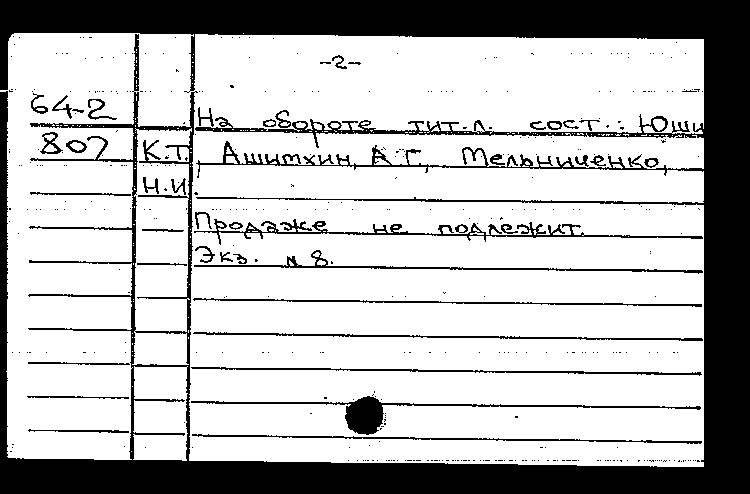 -2-
64-2 На обороте тит.л. сост.: Юши
807 К.Т., Ашитхин, А.Г., Мельниченко,
Н.И.
Продаже не подлежит.
Экз. № 8.